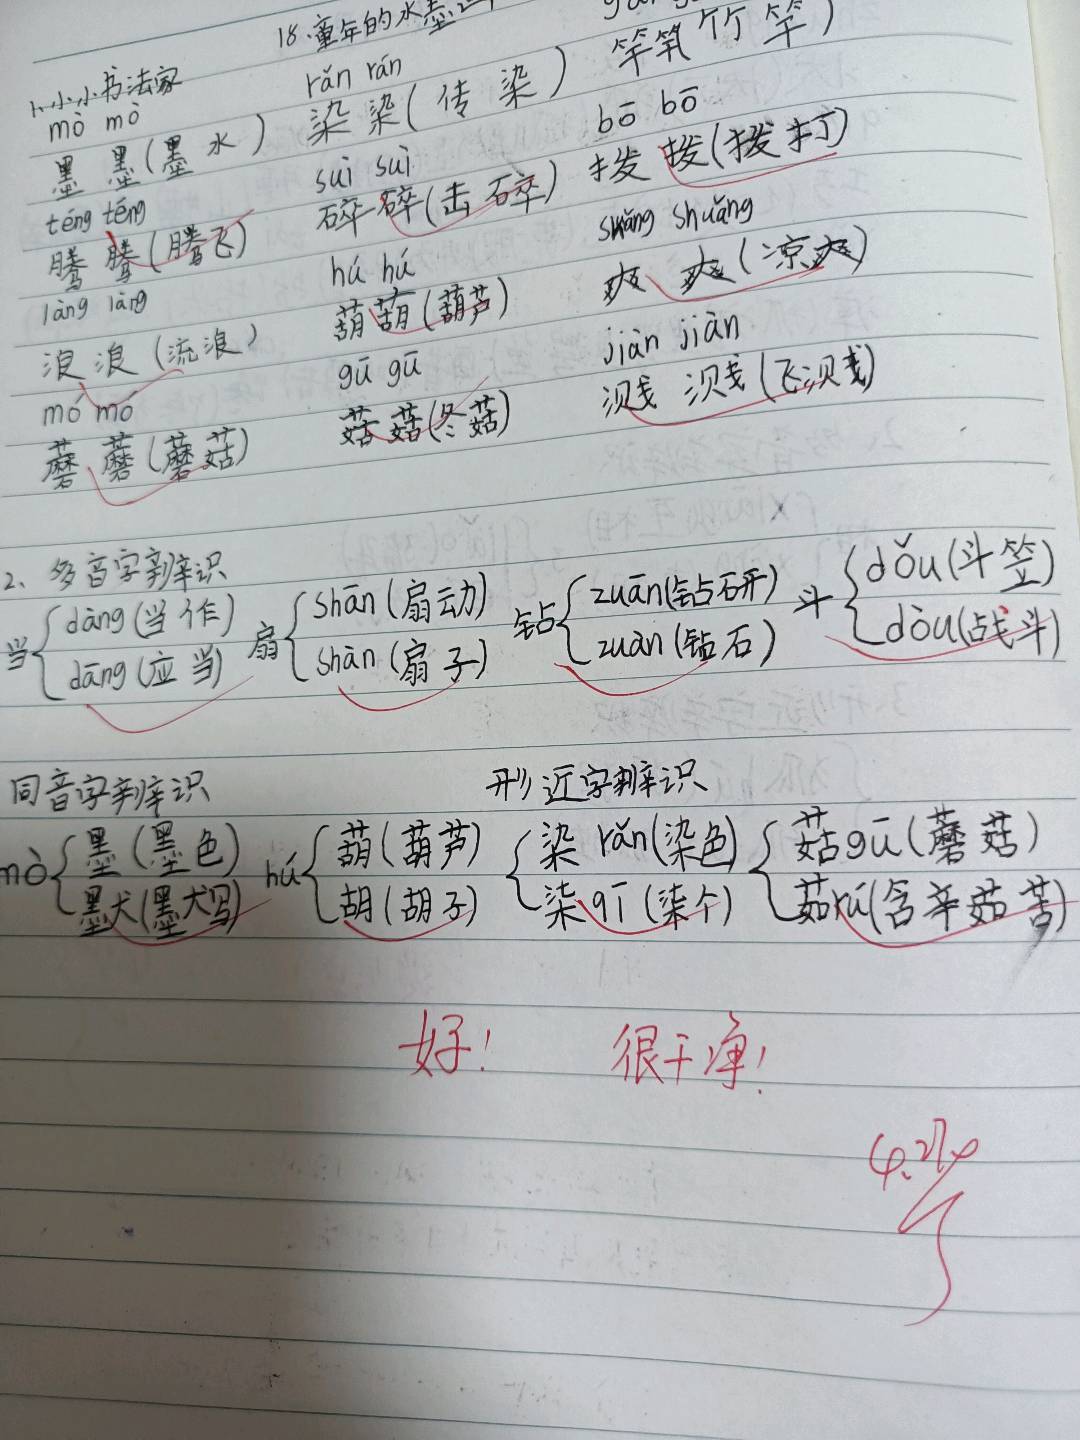 18.童年的水墨
1.小小书法家
mò mò rǎn rǎn
墨 墨(墨水) 染染(传染) 竿竿(竹竿)
téng téng suì suì bō bō
腾 腾(腾飞) 碎碎(击碎) 拨 拨(拨打)
làng làng hú hú shuǎng shuǎng
浪 浪(流浪) 葫葫(葫芦) 爽 爽(凉爽)
mó mó gū gū jiàn jiàn
蘑 蘑(蘑菇) 菇菇(冬菇) 溅 溅(飞溅)
2、多音字辨识
当{dàng(当作) 扇{shān(扇动) 钻{zuān(钻研) 斗{dǒu(斗笠)
dāng(应当) shàn(扇子) zuàn(钻石) dòu(战斗)
同音字辨识 形近字辨识
mò{墨(墨色) hú{葫(葫芦) {染rǎn(染色) {菇gū(蘑菇)
默(默写) 胡(胡子) 柒qī(柒个) 茹rú(含辛茹苦)
好! 很干净!